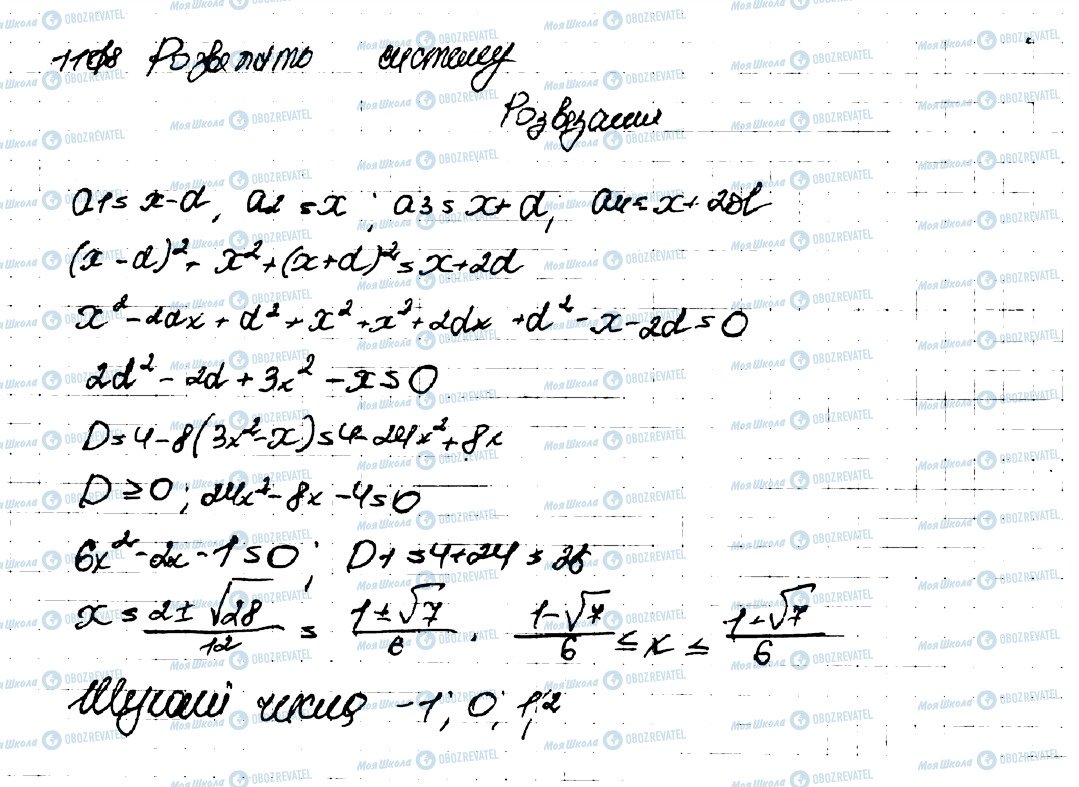 Розвяжіть систему
Розвязання
a1 = x-d, a2 = x; a3 = x+d, a4 = x+2d
(x-d)²+x²+(x+d)² = x+2d
x²-2dx+d²+x²+x²+2dx+d²-x-2d=0
2d²-2d+3x²-x=0
D=4-8(3x²-x)=4-24x²+8x
D≥0; 24x²-8x-4≤0
6x²-2x-1≤0; D1=4+24=28
x = (2±√28)/12 = (1±√7)/6; (1-√7)/6 ≤ x ≤ (1+√7)/6
Шукані числа -1; 0; 1; 2